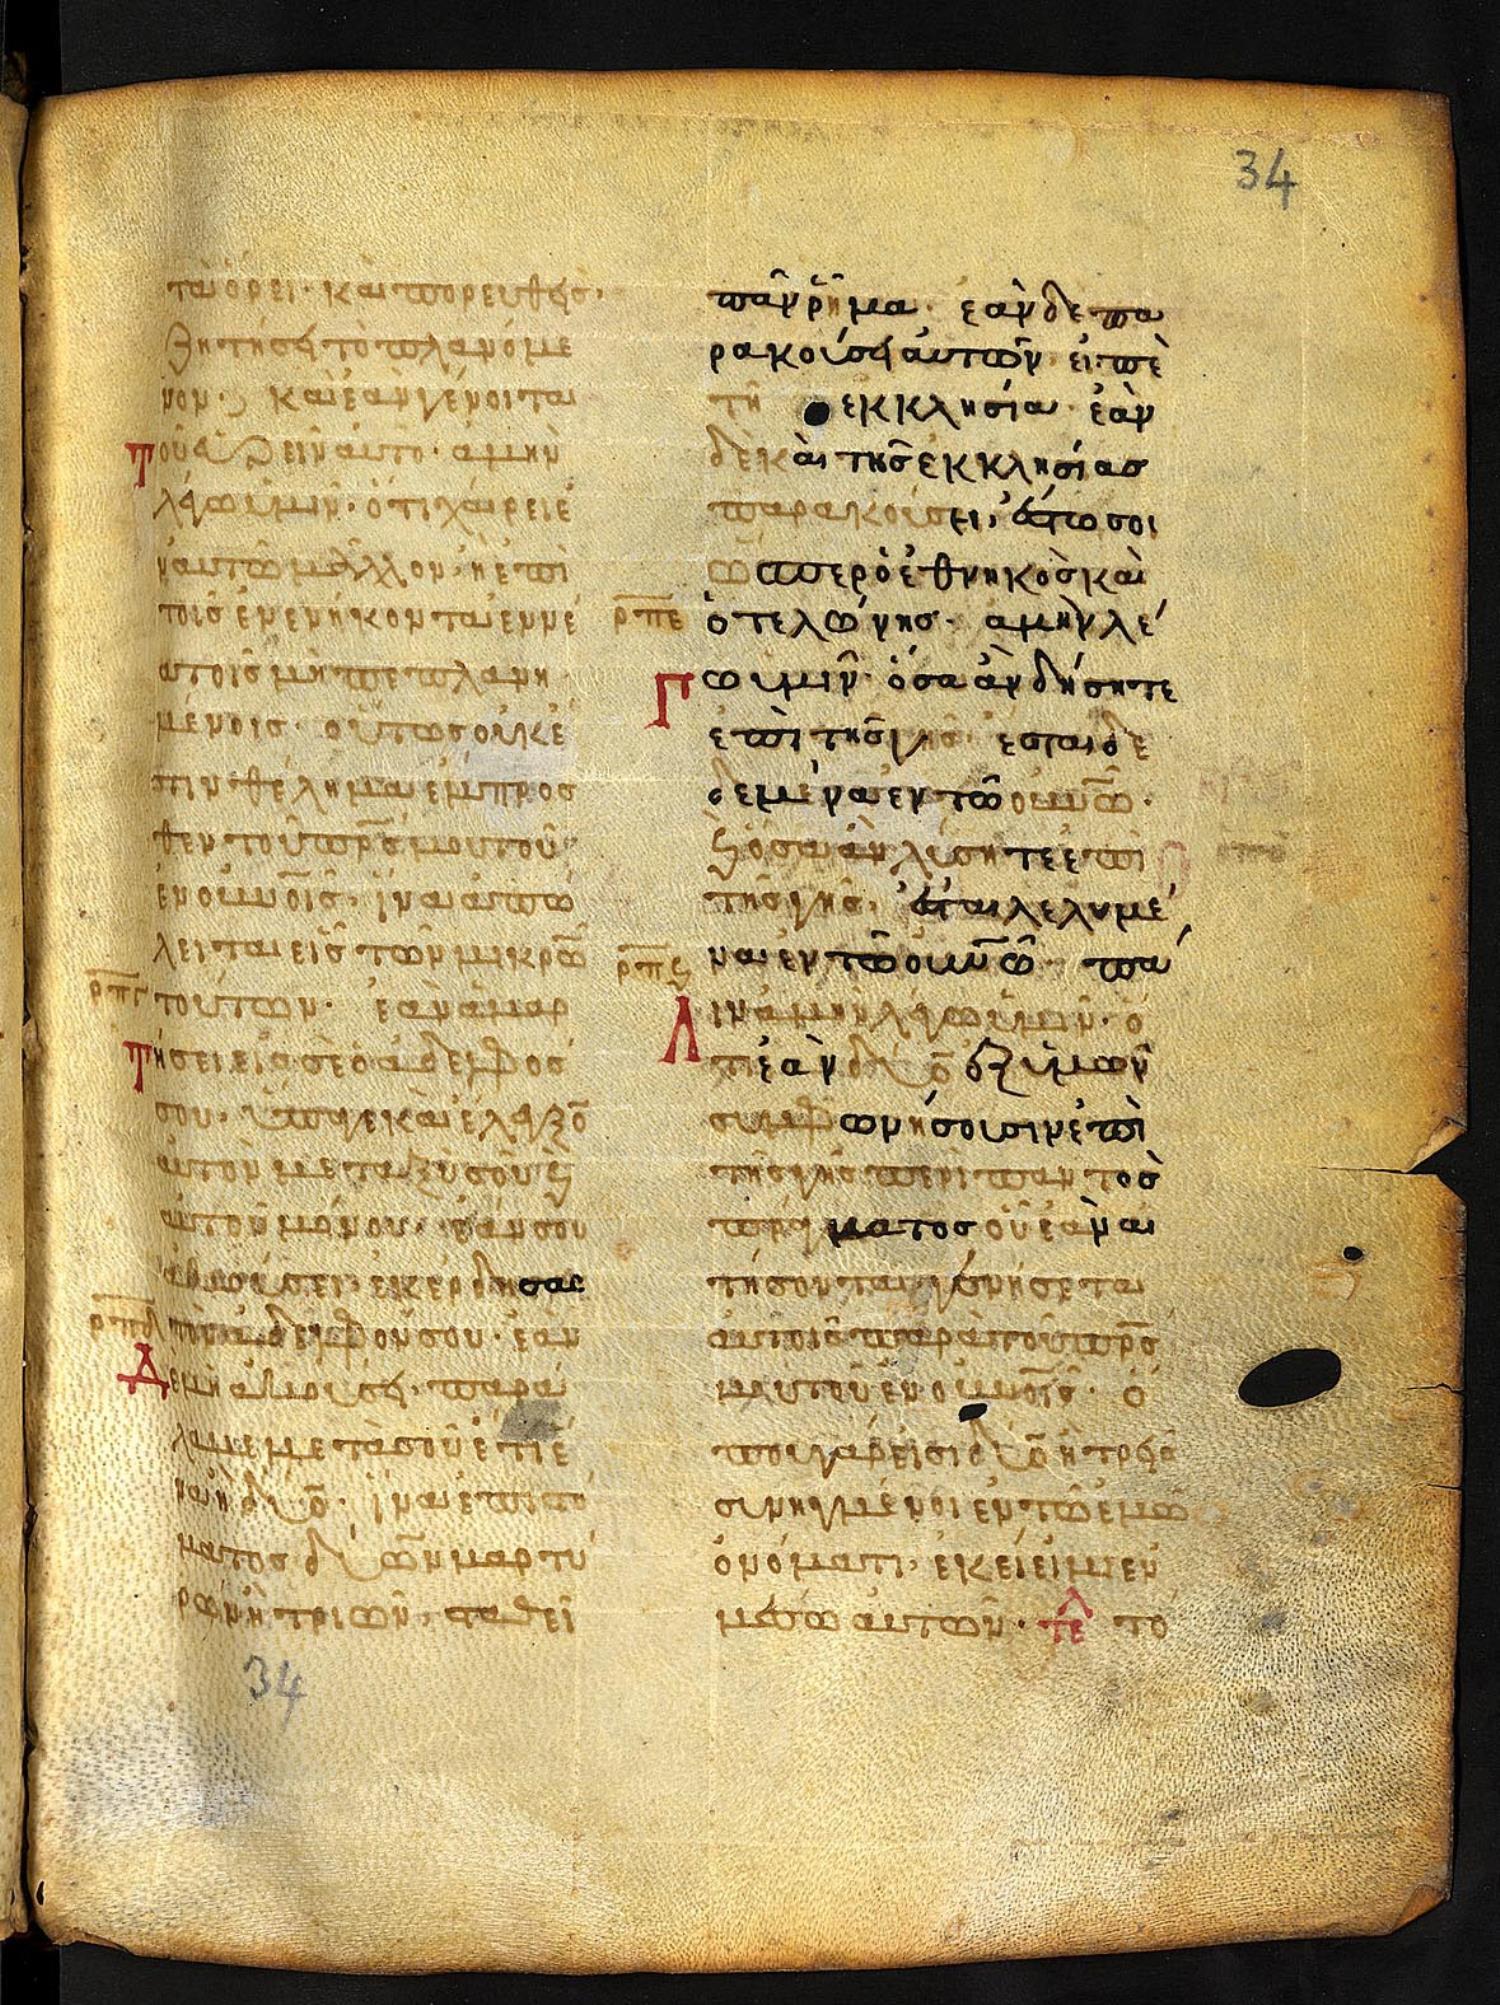 34
τα ὄρει· και πορευθεὶσ·
ζητήσει τὸ πλανόμε
νον· καὶ ἐὰν γένοιτο
τοῦ εὑρεῖν αὐτο· ἀμὴν
λέγω ὑμῖν· ὅτι χαίρει ἐ
π αυτῶ μᾶλλον· ἢ ἐπὶ
τοῖσ ἐνενήκοντα ἐννέ
α τοῖσ μὴ πεπλανη
μένοισ· οὕτωσ οὐκ ἔ
στιν θέλημα ἔμπροσ
θεν τοῦ π̅ρ̅σ̅ μου τοῦ
ἐν ου̅νοι̅σ· ἵνα ἀπό
λειται εἷσ τῶν μικρῶ̅
ρ̅π̅γ̅ τούτων· ἐὰν ἁμαρ
τήσει εἰσ σὲ ὁ ἀδελφόσ
σου· ὕπαγε καὶ ἔλεγξο̅
αὐτὸν μεταξὺ σοῦ ϗ
αὐτοῦ μόνου· ἐάν σου
ἀκούσει· ἐκέρδησασ
ρ̅π̅δ̅ τὸν ἀδελφόν σου· ἐὰν
Δε μὴ ἀκούσει· παρά
λαβε μετὰ σοῦ ἔτι ἕ
να ἢ δύο̅· ἵνα ἐπὶ στό
ματοσ δύω̅ν μαρτύ
ρων ἢ τριῶν· σταθεῖ
34
πᾶν ῥῆμα· ἐὰν δε πα
ρακούσει αὐτῶν· εἰπὲ
τῆ εκκλησία· ἐὰν
δὲ καὶ τῆσ ἐκκλησίασ
παρακούσει, ἔστω σοι
ὥσπερ ὁ ἐθνηκὸσ καὶ
ρ̅π̅ε̅ ὁ τελώνησ· ἀμὴν λέ
Γω ὑμῖν· ὅσα ἀν δήσητε
ἐπὶ τῆσ γῆσ· ἔσται δε
δεμένα ἐν τῶ ου̅νῶ·
ϗ ὅσα ἀν λύσητε ἐπὶ
τῆσ γῆσ, ἔσται λελυμέ
ρ̅π̅ϛ̅ να ἐν τῶ ου̅νῶ· πά
λιν ἀμὴν λέγω ὑμῖν· ὅ
τι ἐὰν δύο̅ ἐξ ὑμῶν
συμφωνήσουσιν ἐπὶ
τῆσ γῆσ περὶ παντὸσ
πράγματοσ οὗ ἐὰν αι
τήσονται· γενήσεται
αὐτοῖσ παρὰ τοῦ π̅ρ̅σ̅
μου τοῦ ἐν ου̅νοι̅σ· ὅ
που γάρ εἰσι δύο̅ ἢ τρεῖσ
συνηγμένοι ἐν τῶ ἐμῶ
ὀνόματι, ἐκεῖ εἰμὶ ἐν
μέσω αὐτῶν· τε̅λ̅ το